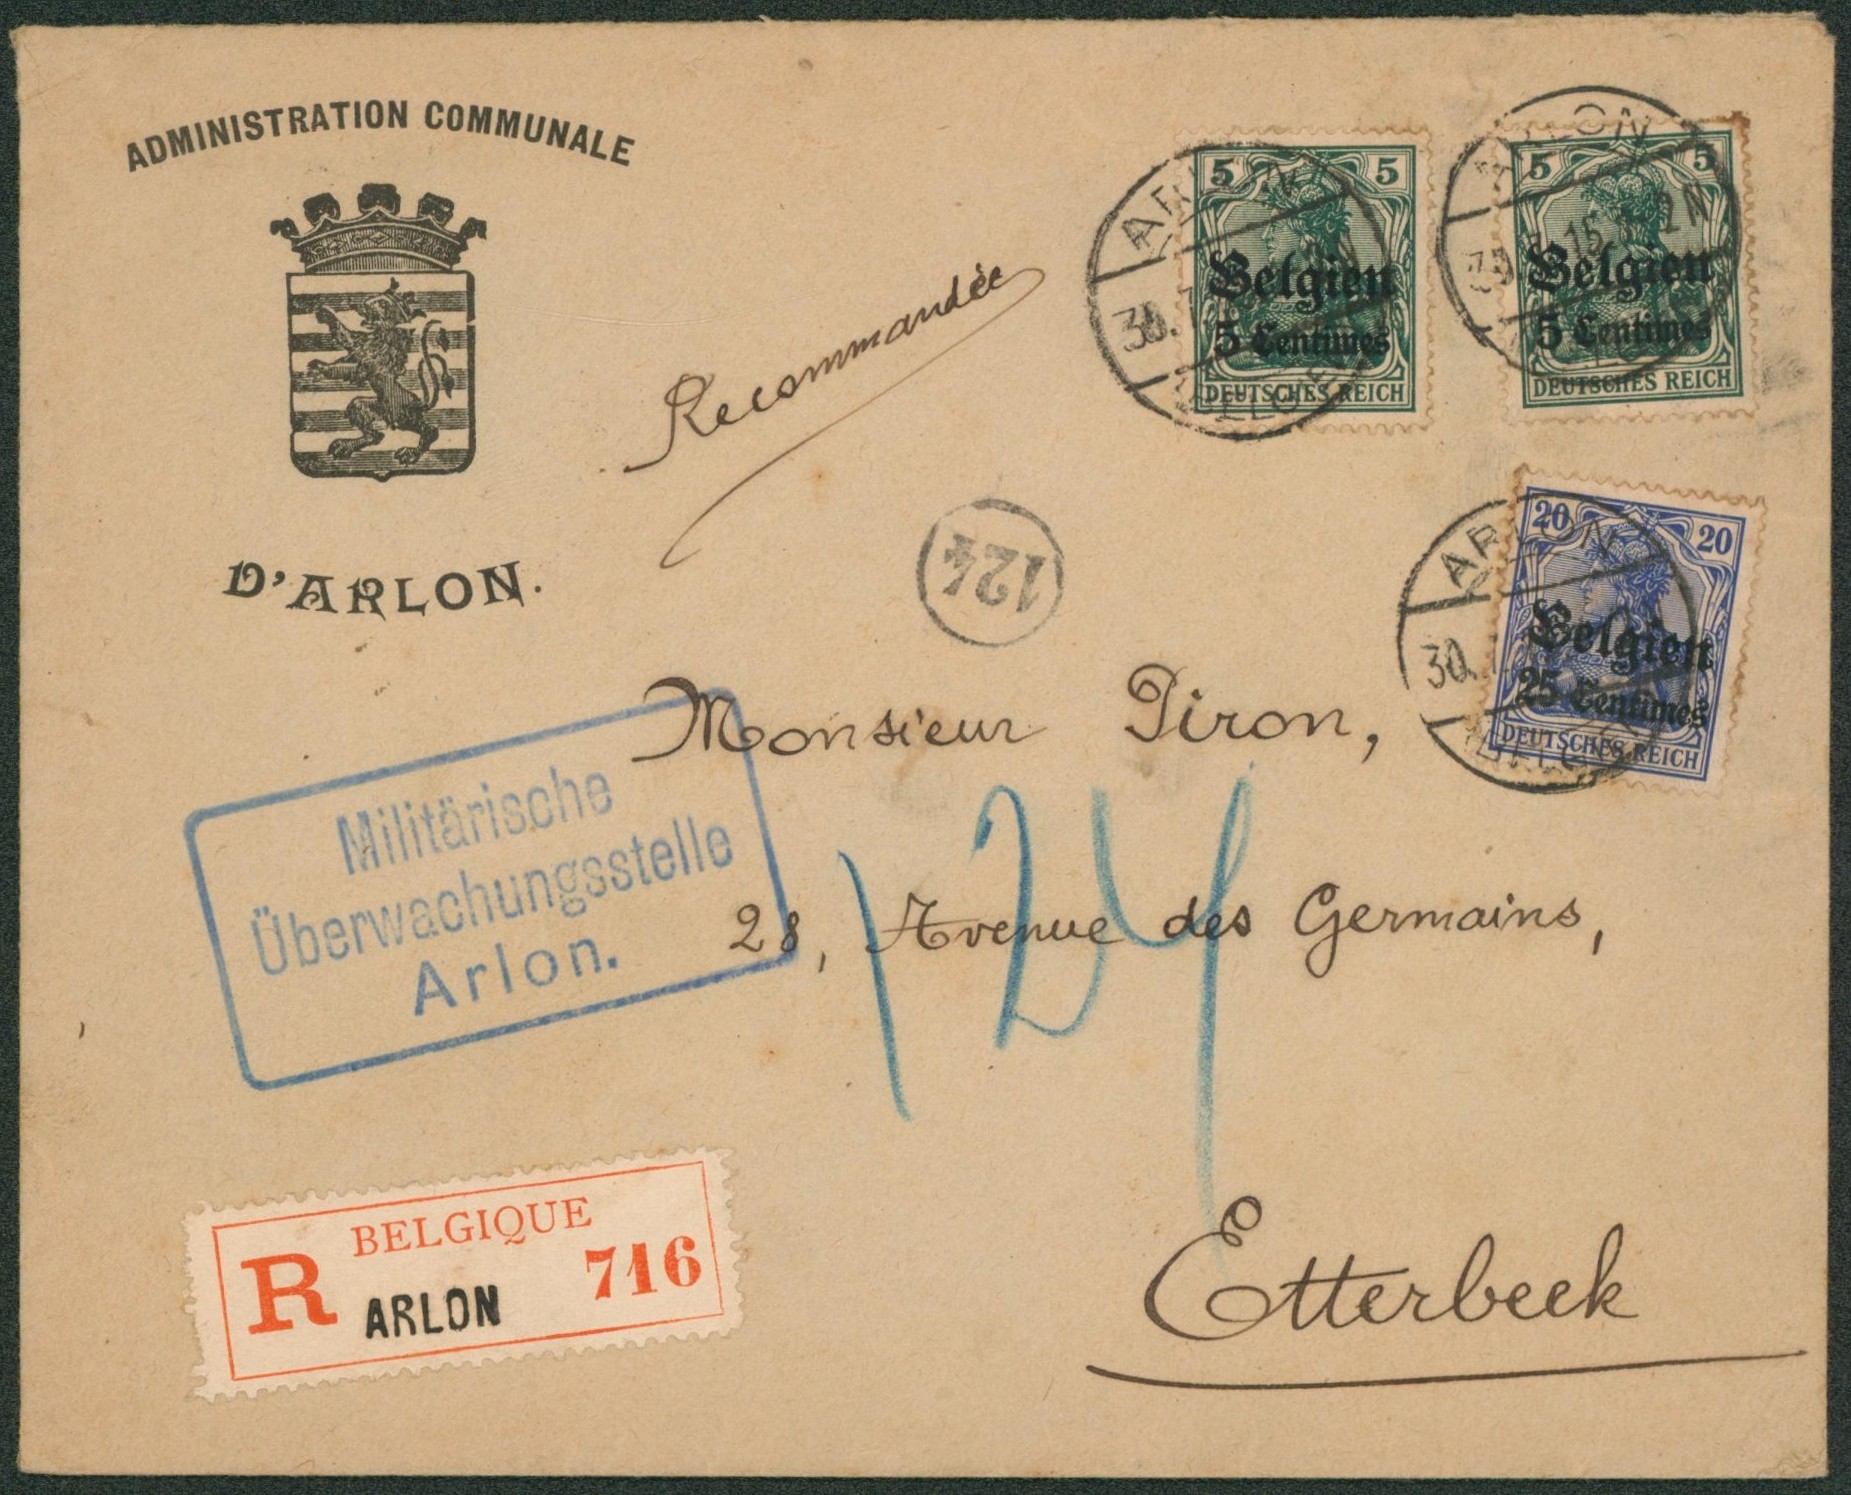 ADMINISTRATION COMMUNALE
D'ARLON.
Recommandée
5 5
Belgien
5 Centimes
DEUTSCHES REICH
ARLON
30.
5 5
Belgien
5 Centimes
DEUTSCHES REICH
ARLON
15
2 N
20 20
Belgien
25 Centimes
DEUTSCHES REICH
ARLON
30.
124
Monsieur Piron,
28, Avenue des Germains,
Etterbeek
124
Militärische
Überwachungsstelle
Arlon.
BELGIQUE
R ARLON 716